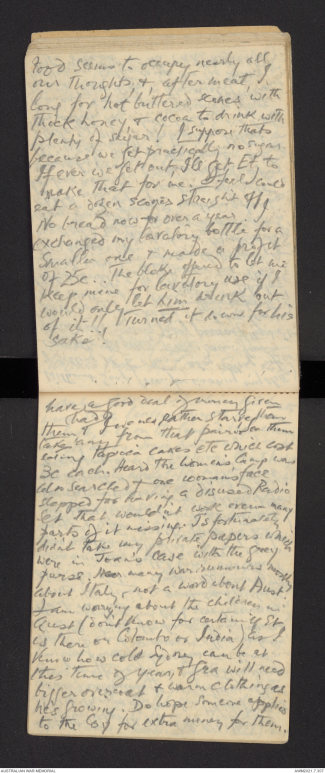 food seems to occupy nearly all
our thoughts, & after meat, I
long for hot buttered scones with
thick honey & cocoa to drink with
plenty of sugar! I suppose thats
because we get practically no sugar.
If ever we get out, I'll get Et to
make that for me. I feel I could
eat a dozen scones straight off!
No bread now for over a year. I
exchanged my lavatory bottle for a
smaller one & made a profit
of 25c.. The bloke offered to let me
keep mine for lavatory use if I
would only let him drink out
of it!! I turned it down for his
sake!
have a good deal of money given
them (had)
take any from that pair on them
eating tapioca cakes etc which cost
3c each. Heard the Women's Camp was
also searched & one womans face
slapped for having a disused Radio
Set that wouldn't work even many
parts of it missing. Js fortunately
didnt take my private papers which
were in Joan's case with the grey
purse. Hear many war rumours mostly
about Italy, not a word about Aust:
I am worrying about the children in
Aust (dont know for certain if Et
is there or Colombo or India) as I
know how cold Sydney can be at
this time of year, & Gra will need
bigger overcoat & warm clothing as
he's growing. Do hope someone applies
to the Gov for extra money for them.
AUSTRALIAN WAR MEMORIAL